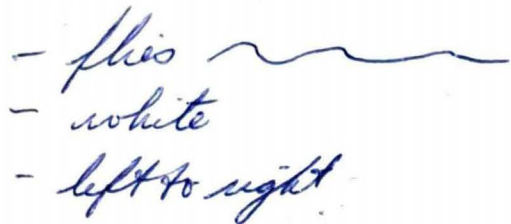 - flies
- white
- left to right